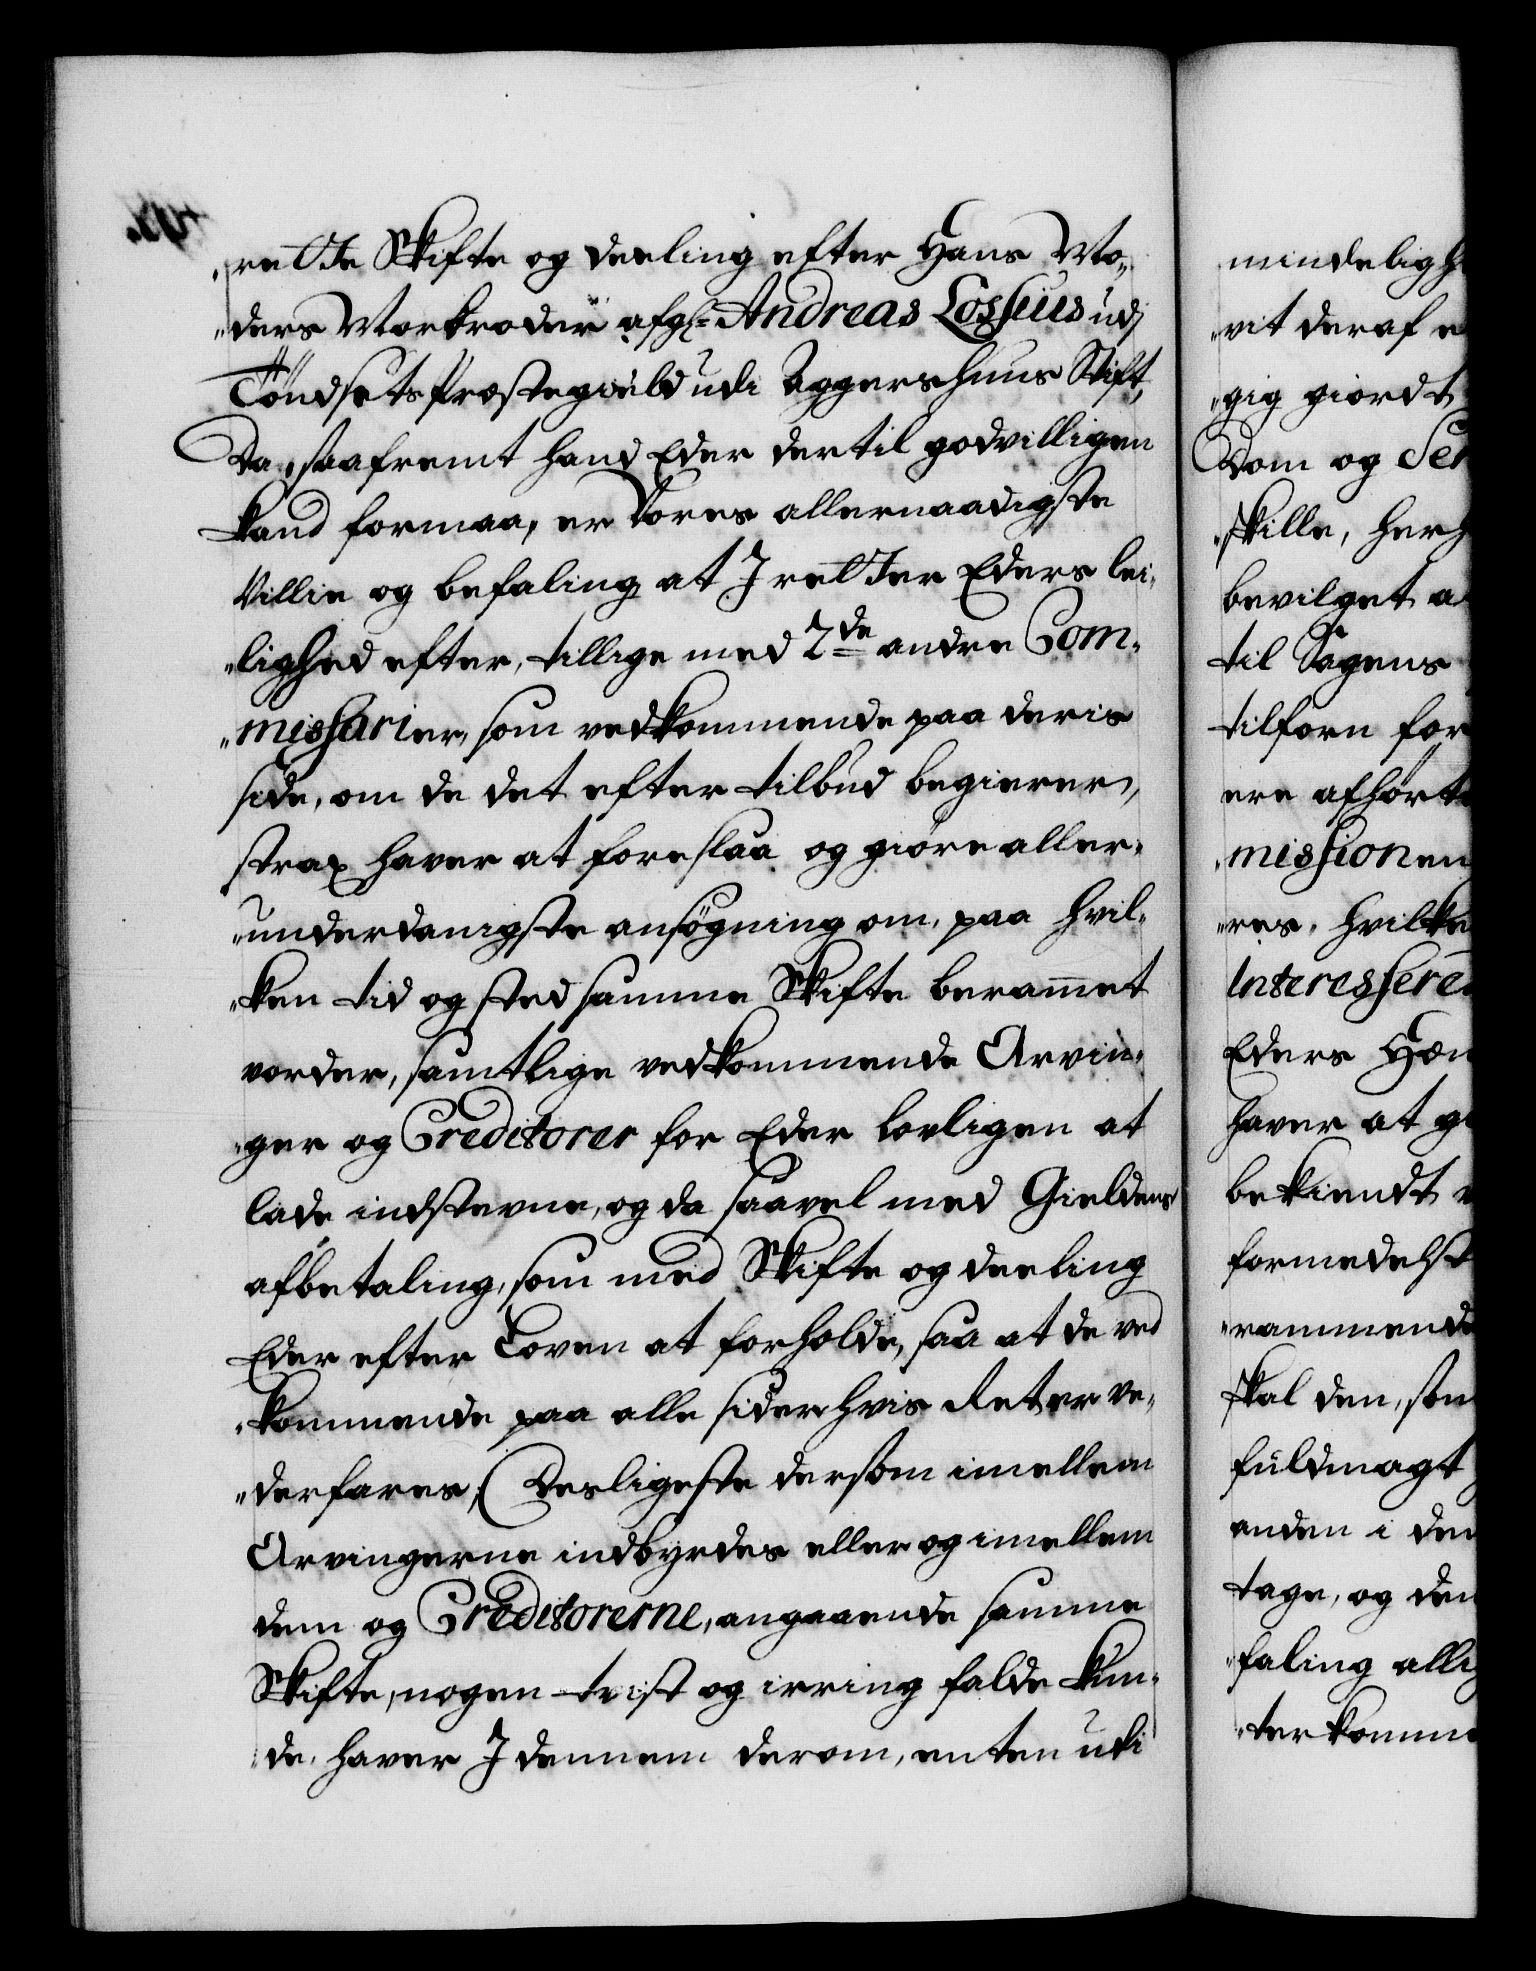 „rette Skifte og deeling efter Hans Mo„
„ders Morbroder afgl: Andreas Lossius udj
Töndsets Præstegield udi Aggershuus Stift,
Da, saafremt hand Eder dertil godvilligen
kand formaa, er Vores allernaadigste
Villie og befaling at J retter Eders lei„
„lighed efter, tillige med 2de andre Com„
„missarier, som vedkommende paa deris
side, om de det efter tilbud begierer,
strax haver at foreslaa og giöre aller„
„underdanigste ansögning om, paa hvil„
„ken tid og sted samme Skifte beram̅et
vorder, samtlige vedkommende Arvin„
„ger og Creditorer for Eder lovligen at
lade indstevne, og da saavel med Gieldens
afbetaling, som med Skifte og deeling
Eder efter Loven at forholde, saa at de ved
„kommende paa alle sider hvis Ret er ve„
„derfares; Desligeste dersom imellem
Arvingerne indbyrdes eller og imellem
dem og Creditorerne, angaaende samme
Skifte, nogen tvist og irring falde kun„
„de, haver J dennem derom, enten udi
mindeligh
„vit deraf e
„gig giordt
Dom og Sen
„skille, herh
bevilget a
til Sagens
tilforn for
ere afhört
„missionen
„res, hvilke
Interessere
Eders Hæn
haver at g
bekiendt
formedelst
„rammende
skal den, som
fuldmagt
anden i den
tage, og den
„faling alli
„terkomme